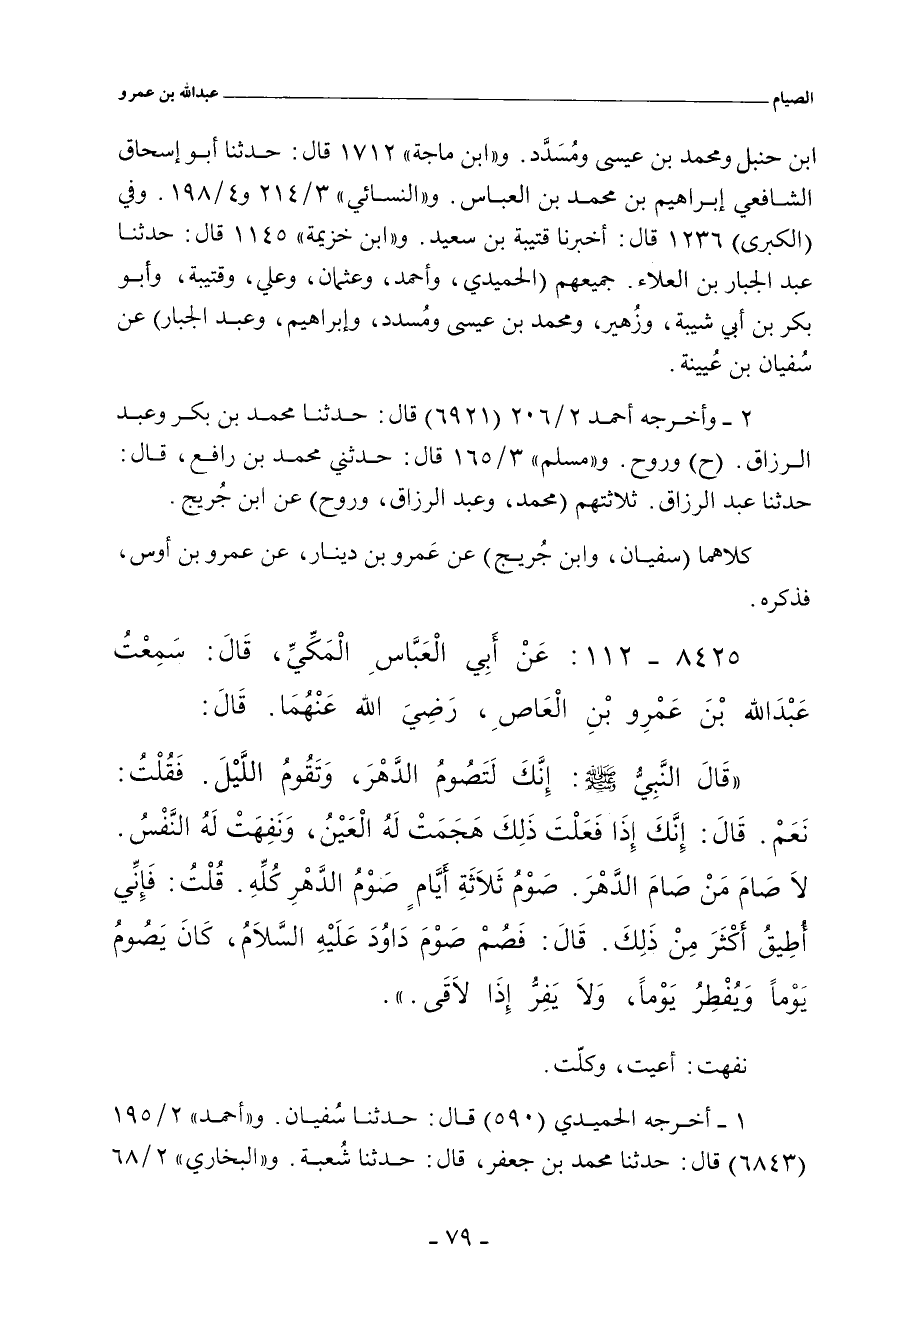 الصيام ــــــــــــــــــــ عبدالله بن عمرو
ابن حنبل ومحمد بن عيسى ومُسَدَّد. و«ابن ماجة» ١٧١٢ قال: حدثنا أبو إسحاق
الشافعي إبراهيم بن محمد بن العباس. و«النسائي» ٢١٤/٣ و١٩٨/٤. وفي
(الكبرى) ١٢٣٦ قال: أخبرنا قتيبة بن سعيد. و«ابن خزيمة» ١١٤٥ قال: حدثنا
عبد الجبار بن العلاء. جميعهم (الحميدي، وأحمد، وعثمان، وعلي، وقتيبة، وأبو
بكر بن أبي شيبة، وزُهير، ومحمد بن عيسى ومُسدد، وإبراهيم، وعبد الجبار) عن
سُفيان بن عُيينة.
٢ ـ وأخرجه أحمد ٢٠٦/٢ (٦٩٢١) قال: حدثنا محمد بن بكر وعبد
الرزاق. (ح) وروح. و«مسلم» ١٦٥/٣ قال: حدثني محمد بن رافع، قال:
حدثنا عبد الرزاق. ثلاثتهم (محمد، وعبد الرزاق، وروح) عن ابن جُريج.
كلاهما (سفيان، وابن جُريج) عن عَمرو بن دينار، عن عمرو بن أوس،
فذكره.
٨٤٢٥ ـ ١١٢: عَنْ أَبِي الْعَبَّاسِ الْمَكِّيِّ، قَالَ: سَمِعْتُ
عَبْدَالله بْنَ عَمْرِو بْنِ الْعَاصِ، رَضِيَ الله عَنْهُمَا. قَالَ:
«قَالَ النَّبِيُّ ﷺ: إِنَّكَ لَتَصُومُ الدَّهْرَ، وَتَقُومُ اللَّيْلَ. فَقُلْتُ:
نَعَمْ. قَالَ: إِنَّكَ إِذَا فَعَلْتَ ذَلِكَ هَجَمَتْ لَهُ الْعَيْنُ، وَنَفِهَتْ لَهُ النَّفْسُ.
لاَ صَامَ مَنْ صَامَ الدَّهْرَ. صَوْمُ ثَلاَثَةِ أَيَّامٍ صَوْمُ الدَّهْرِ كُلِّهِ. قُلْتُ: فَإِنِّي
أُطِيقُ أَكْثَرَ مِنْ ذَلِكَ. قَالَ: فَصُمْ صَوْمَ دَاوُدَ عَلَيْهِ السَّلاَمُ، كَانَ يَصُومُ
يَوْماً وَيُفْطِرُ يَوْماً، وَلاَ يَفِرُّ إِذَا لاَقَى.».
نفهت: أعيت، وكلّت.
١ ـ أخرجه الحميدي (٥٩٠) قال: حدثنا سُفيان. و«أحمد» ١٩٥/٢
(٦٨٤٣) قال: حدثنا محمد بن جعفر، قال: حدثنا شُعبة. و«البخاري» ٦٨/٢
ـ ٧٩ ـ